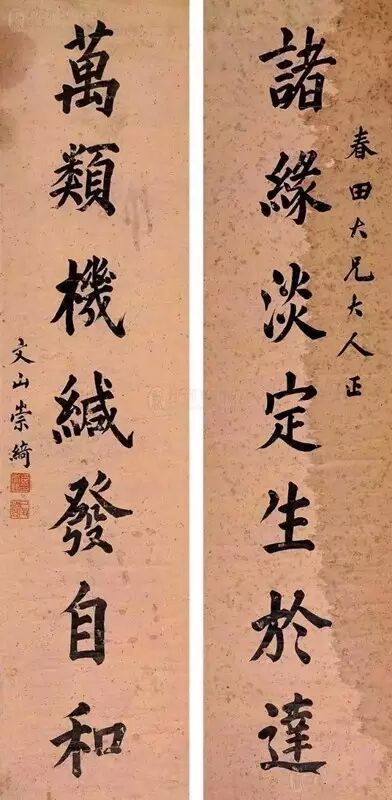 諸緣淡定生於達
春田大兄大人正
萬類機緘發自和
文山崇綺